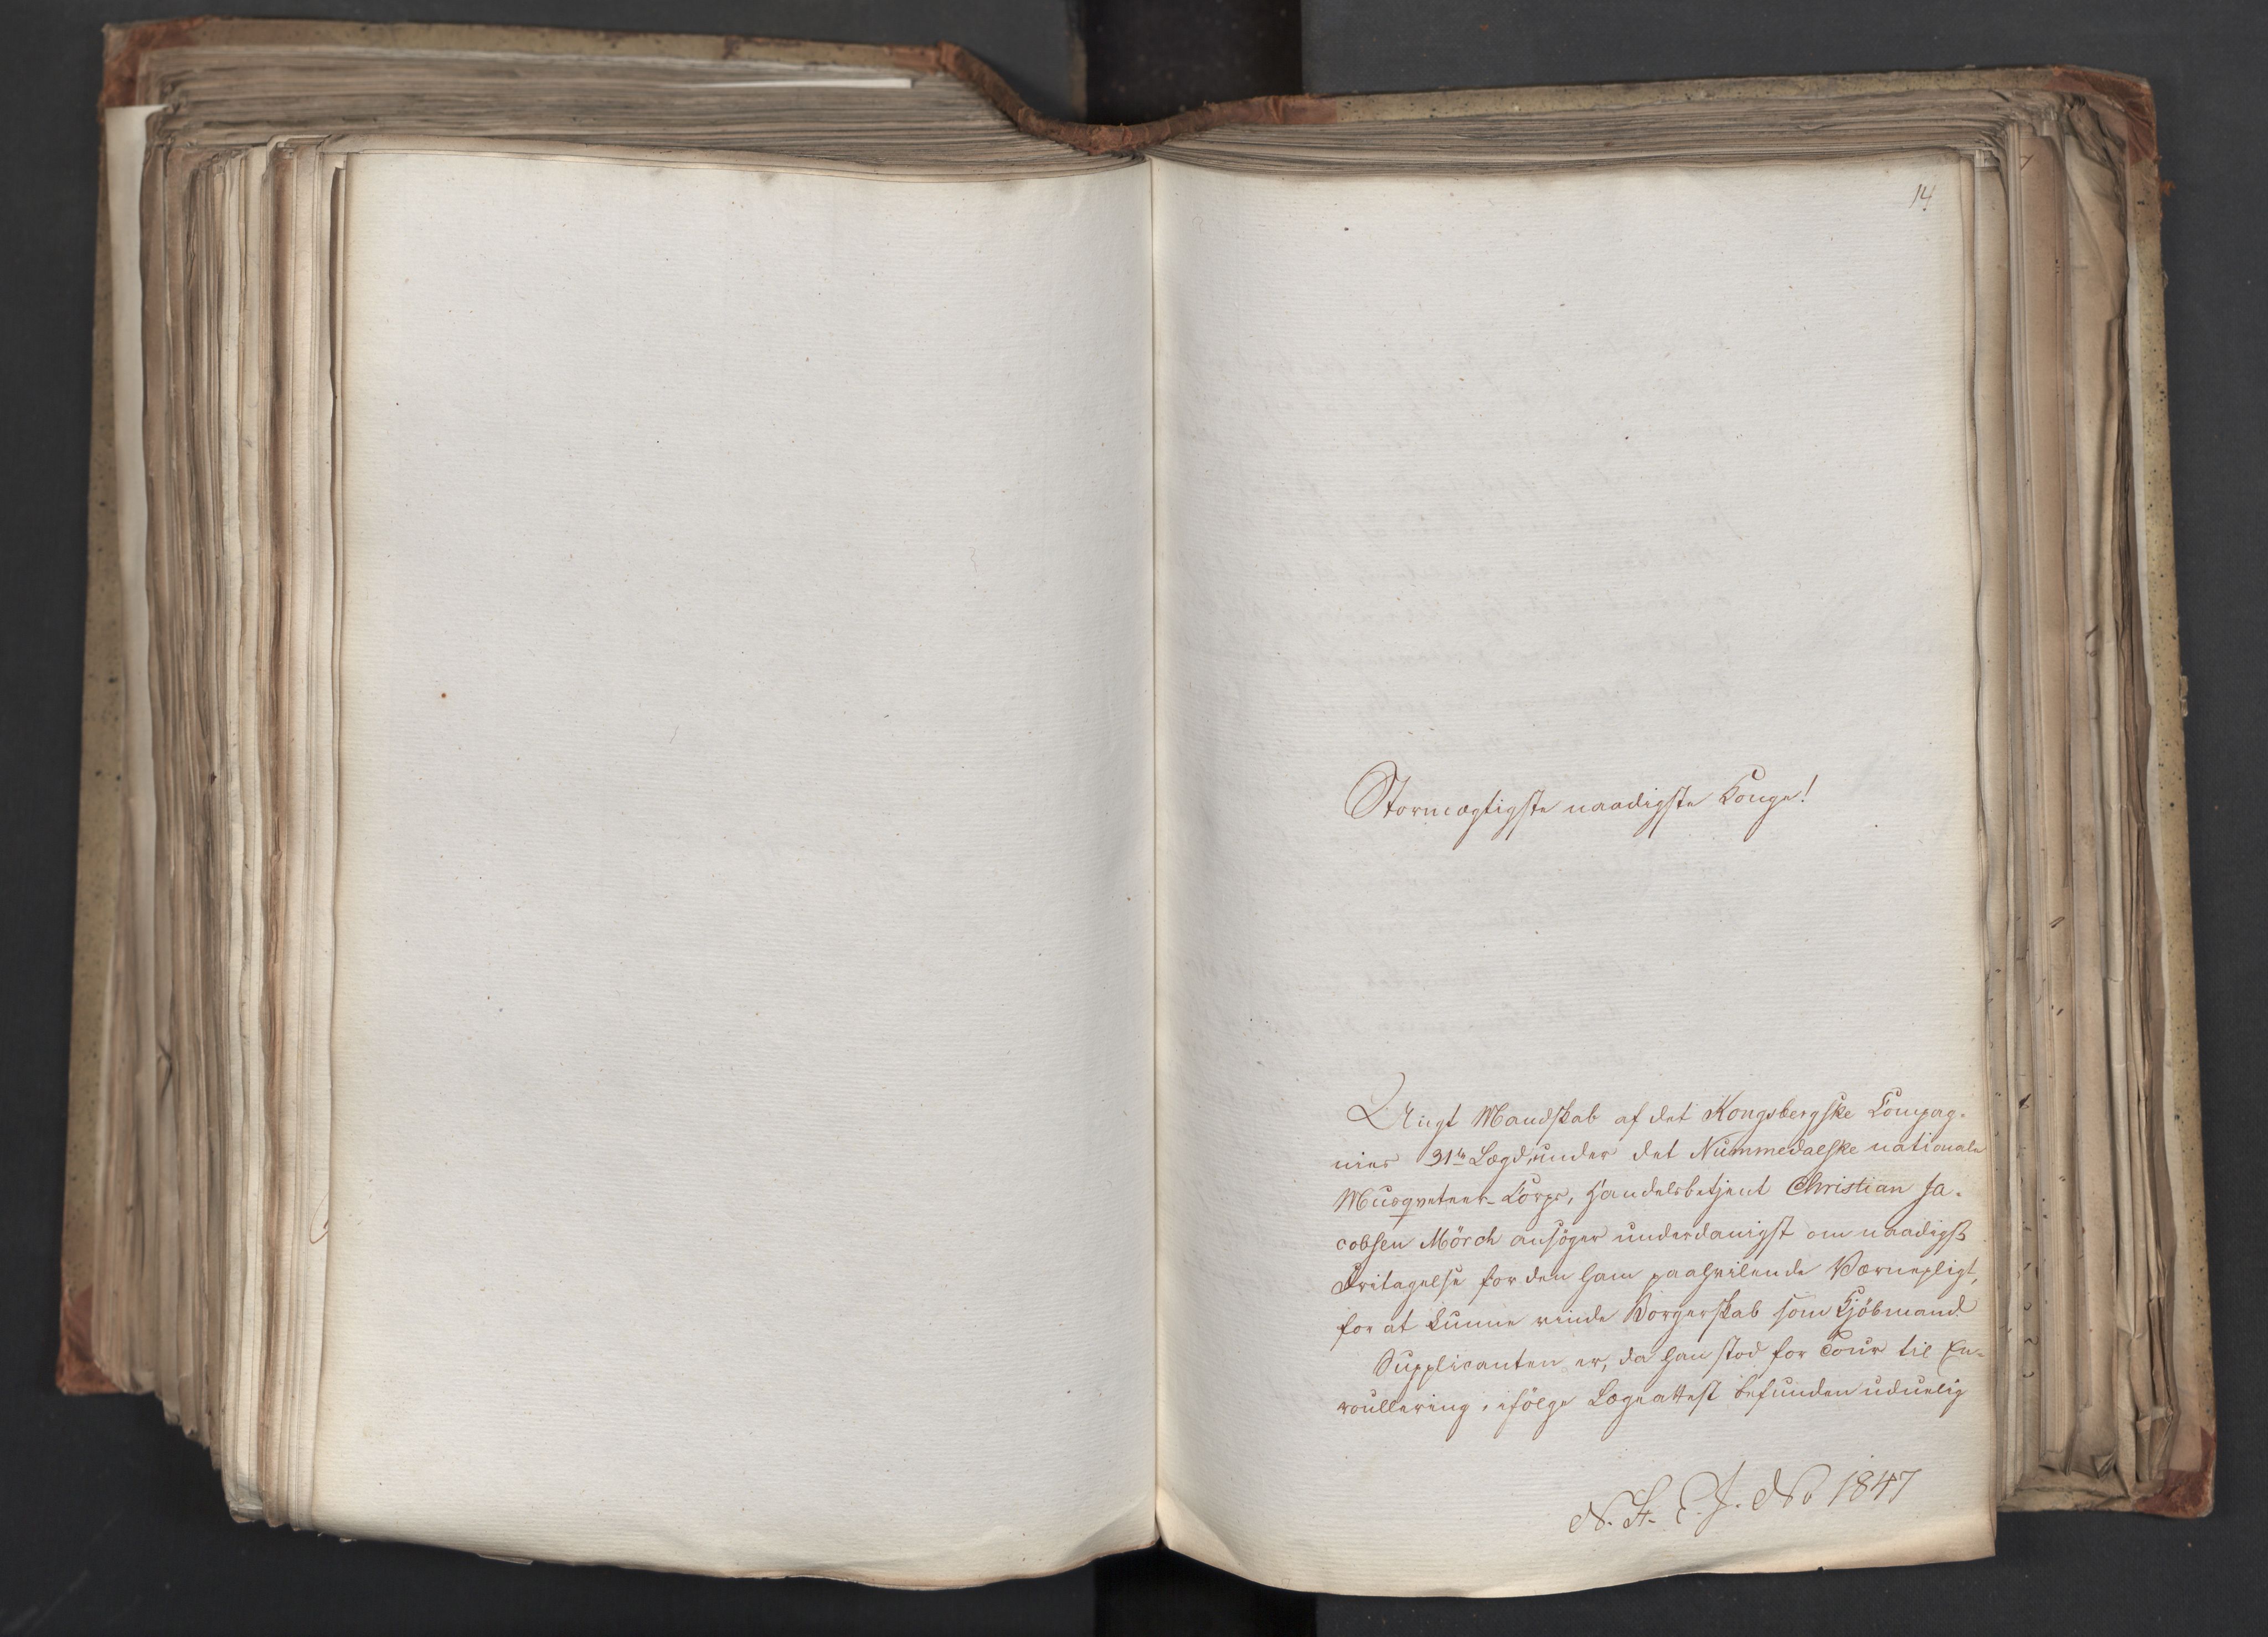 14
Stormægtigste naadigste Konge!
Ungt Mandskab af det Kongsbergske Compag-
nies 31te Lægd, under det Nummedalske nationale
Musqveteer-Corps, Handelsbetjent Christian Ja-
cobsen Mörch ansöger underdanigst om naadigst
Fritagelse for den ham paahvilende Værnepligt,
for at kunne vinde Borgerskab som Kjöbmand
Supplicanten er, da han stod for Tour til En-
roullering, ifölge Lægeattest befunden uduelig
N. St. E. J. No 1847